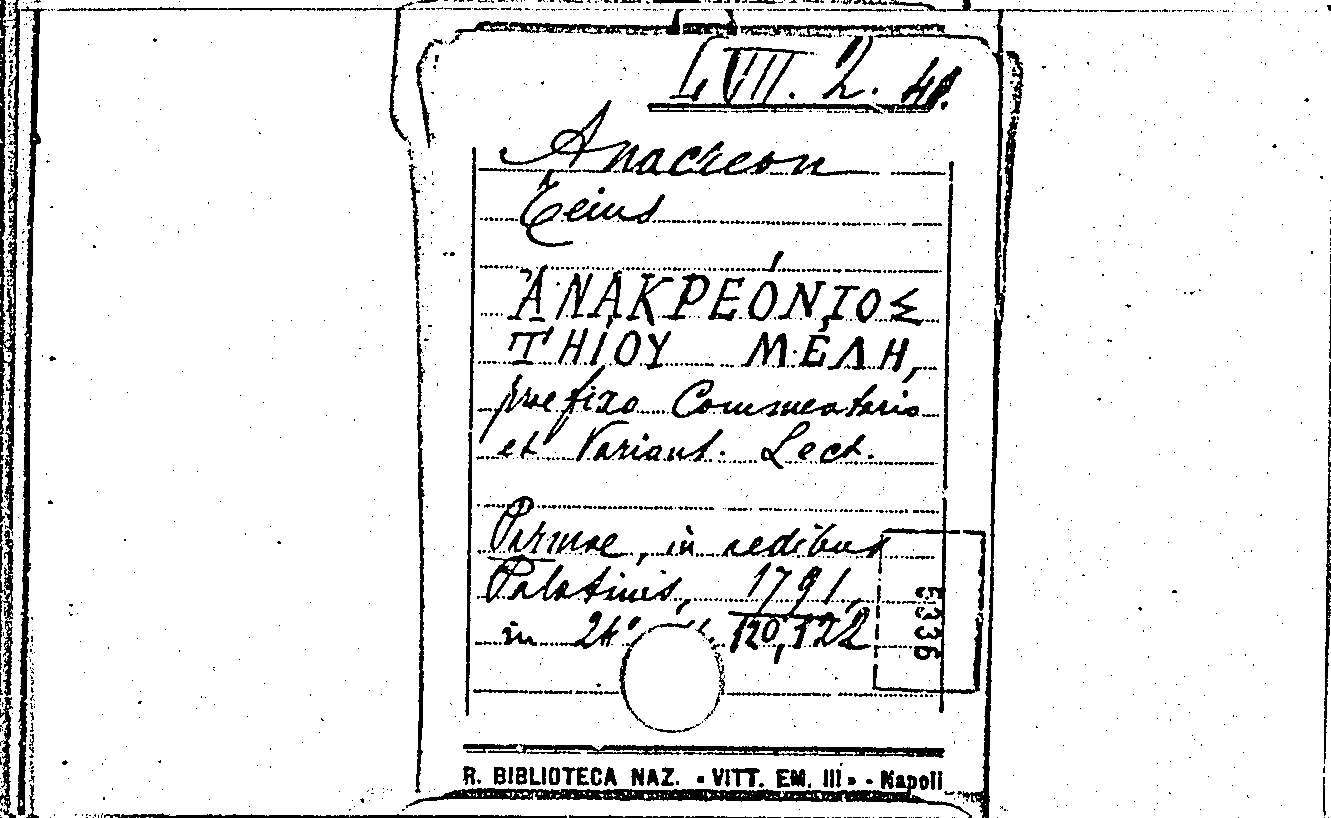 L VII. 2. 48.
Anacreon
Teius
ἈΝΑΚΡΕΌΝΤΟΣ
ΤΗΪ́ΟΥ ΜΈΛΗ,
praefixo Commentario
et Variant. Lect.
Parmae, in aedibus
Palatinis, 1791,
in 24° 120, 122
5336
R. BIBLIOTECA NAZ. « VITT. EM. III » - Napoli